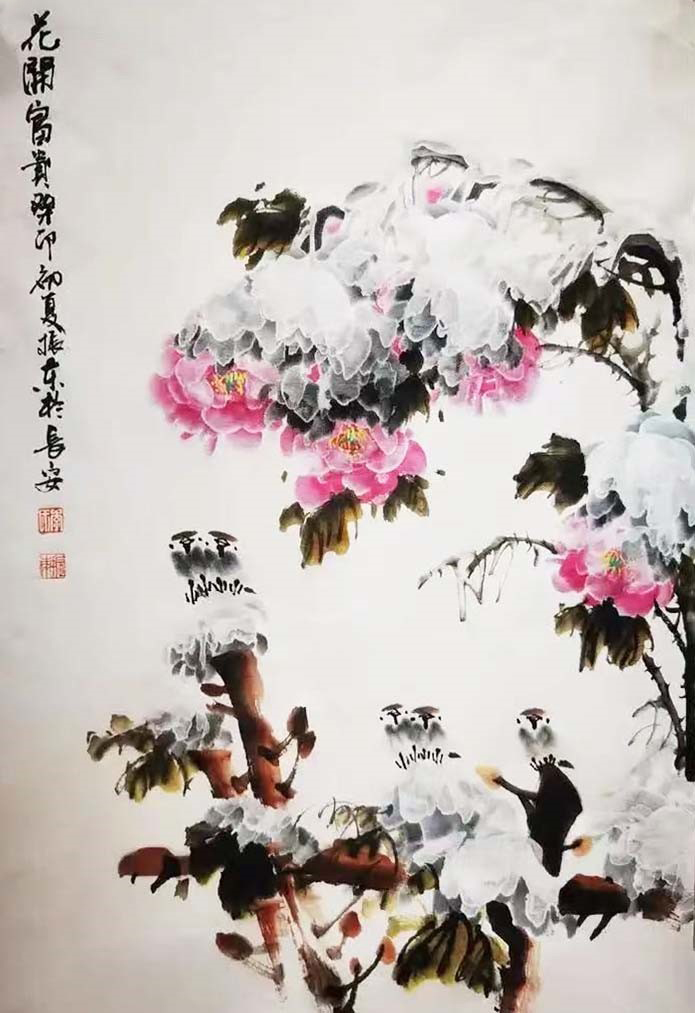 花開富貴癸卯初夏振东於長安